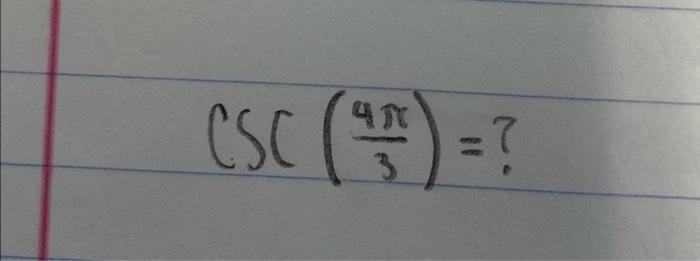 CSC (4π/3) = ?